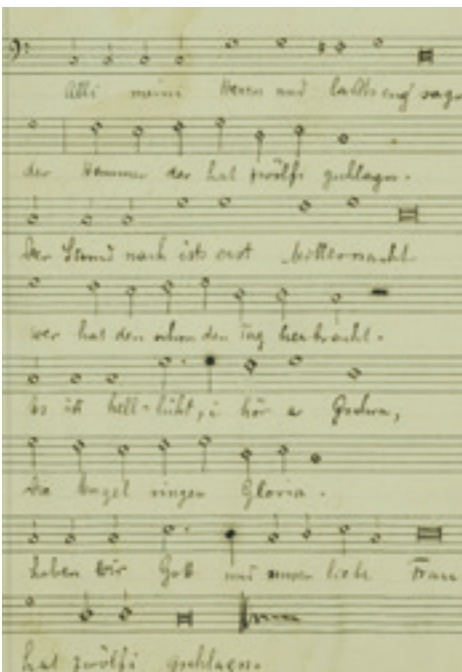 Alli meini Herrn und laßts eng sagn
der Hammer der hat zwölfi gschlagn.
Der Stund nach ists erst Mitternacht
wer hat den schon den Tag herbracht.
Es ist hell-licht, i hör a Gschra,
Die Engel singen Gloria.
Loben wir Gott und unser liebe Frau
hat zwölfi gschlagn.